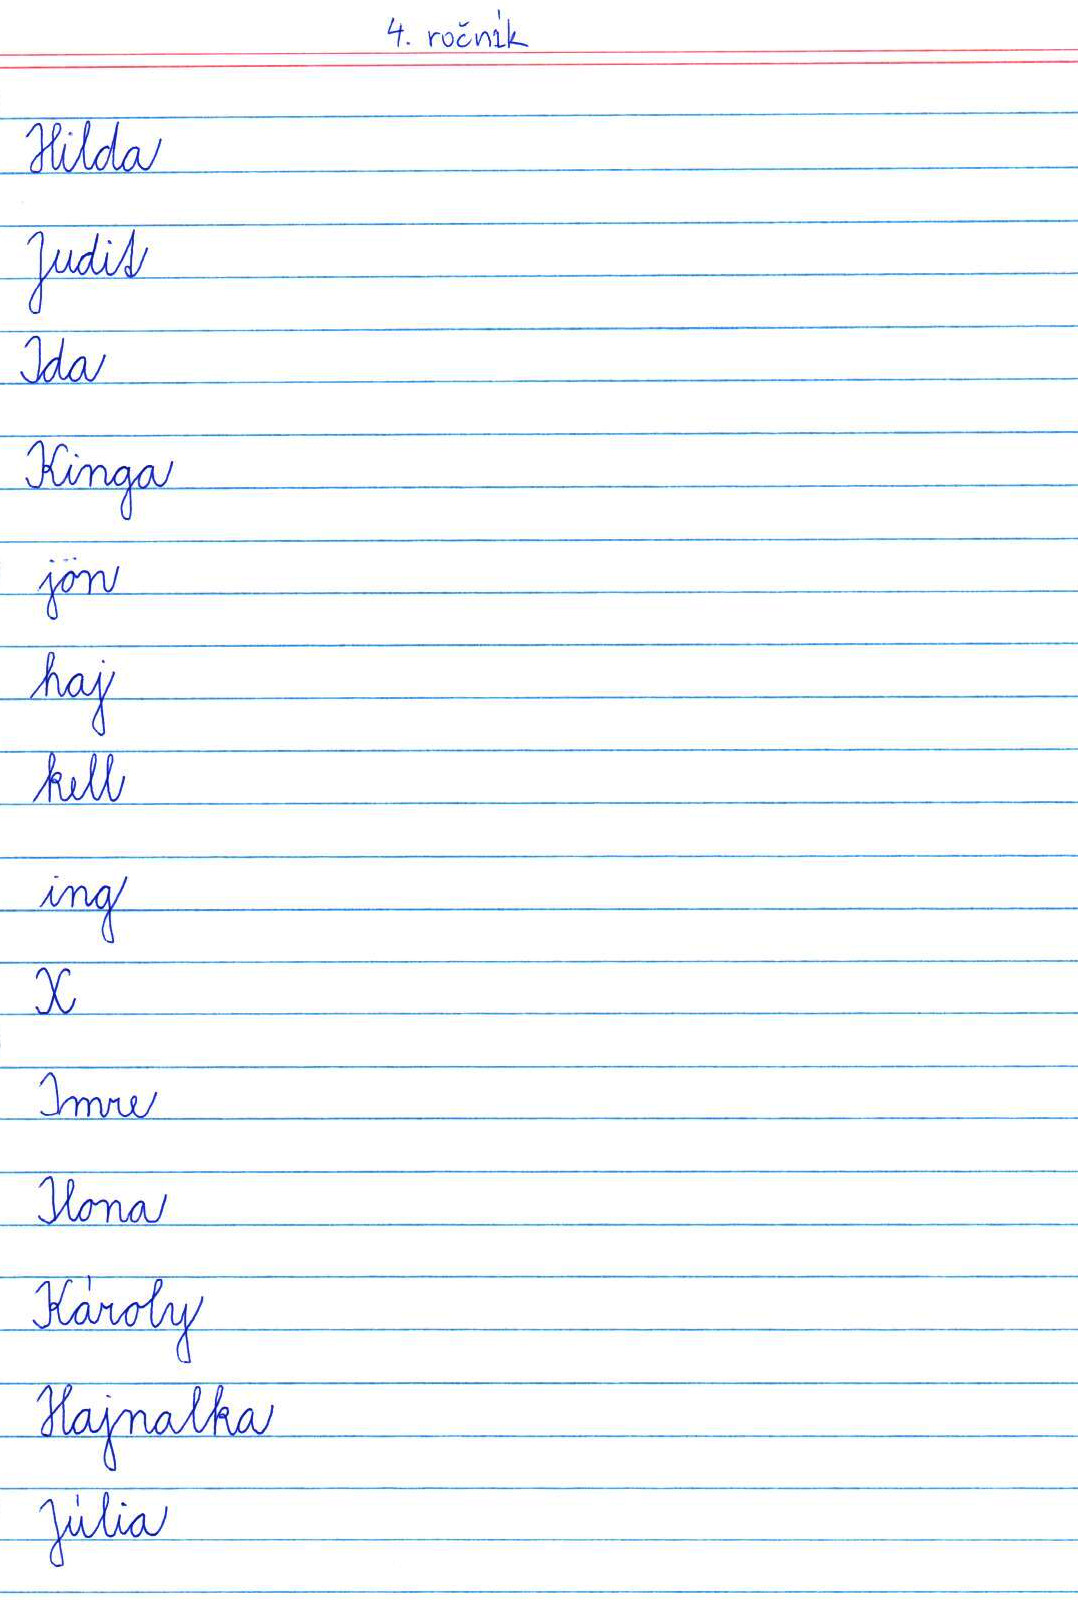 4. ročník
Hilda
Judit
Ida
Kinga
jön
haj
kell
ing
X
Imre
Ilona
Károly
Hajnalka
Júlia